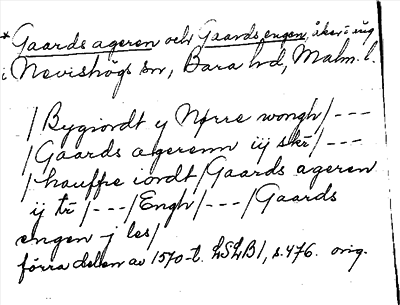 *Gaards ageren och Gaards engen, åker i äng
i Nevishögs sn, Bara hd, Malm. l.
/Bygiordt y Nørre wongh/---
/Gaards agerenn iij skr/---
/hauffre iordt/Gaards ageren
ij tr/---/Engh/---/Gaards
engen j les/
förra delen av 1570-t. LSLB1, s.476. orig.